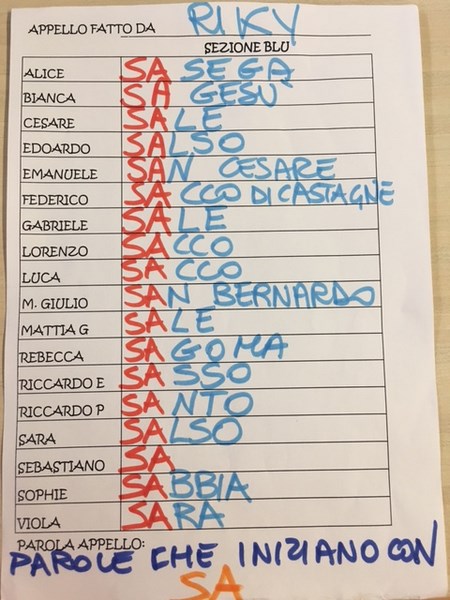 APPELLO FATTO DA RIKY
SEZIONE BLU
ALICE SA SEGA
BIANCA SA GESU'
CESARE SALE
EDOARDO SALSO
EMANUELE SAN CESARE
FEDERICO SACCO DI CASTAGNE
GABRIELE SALE
LORENZO SACCO
LUCA SACCO
M. GIULIO SAN BERNARDO
MATTIA G SALE
REBECCA SAGOMA
RICCARDO E SASSO
RICCARDO P SANTO
SARA SALSO
SEBASTIANO SA
SOPHIE SABBIA
VIOLA SARA
PAROLA APPELLO:
PAROLE CHE INIZIANO CON
SA